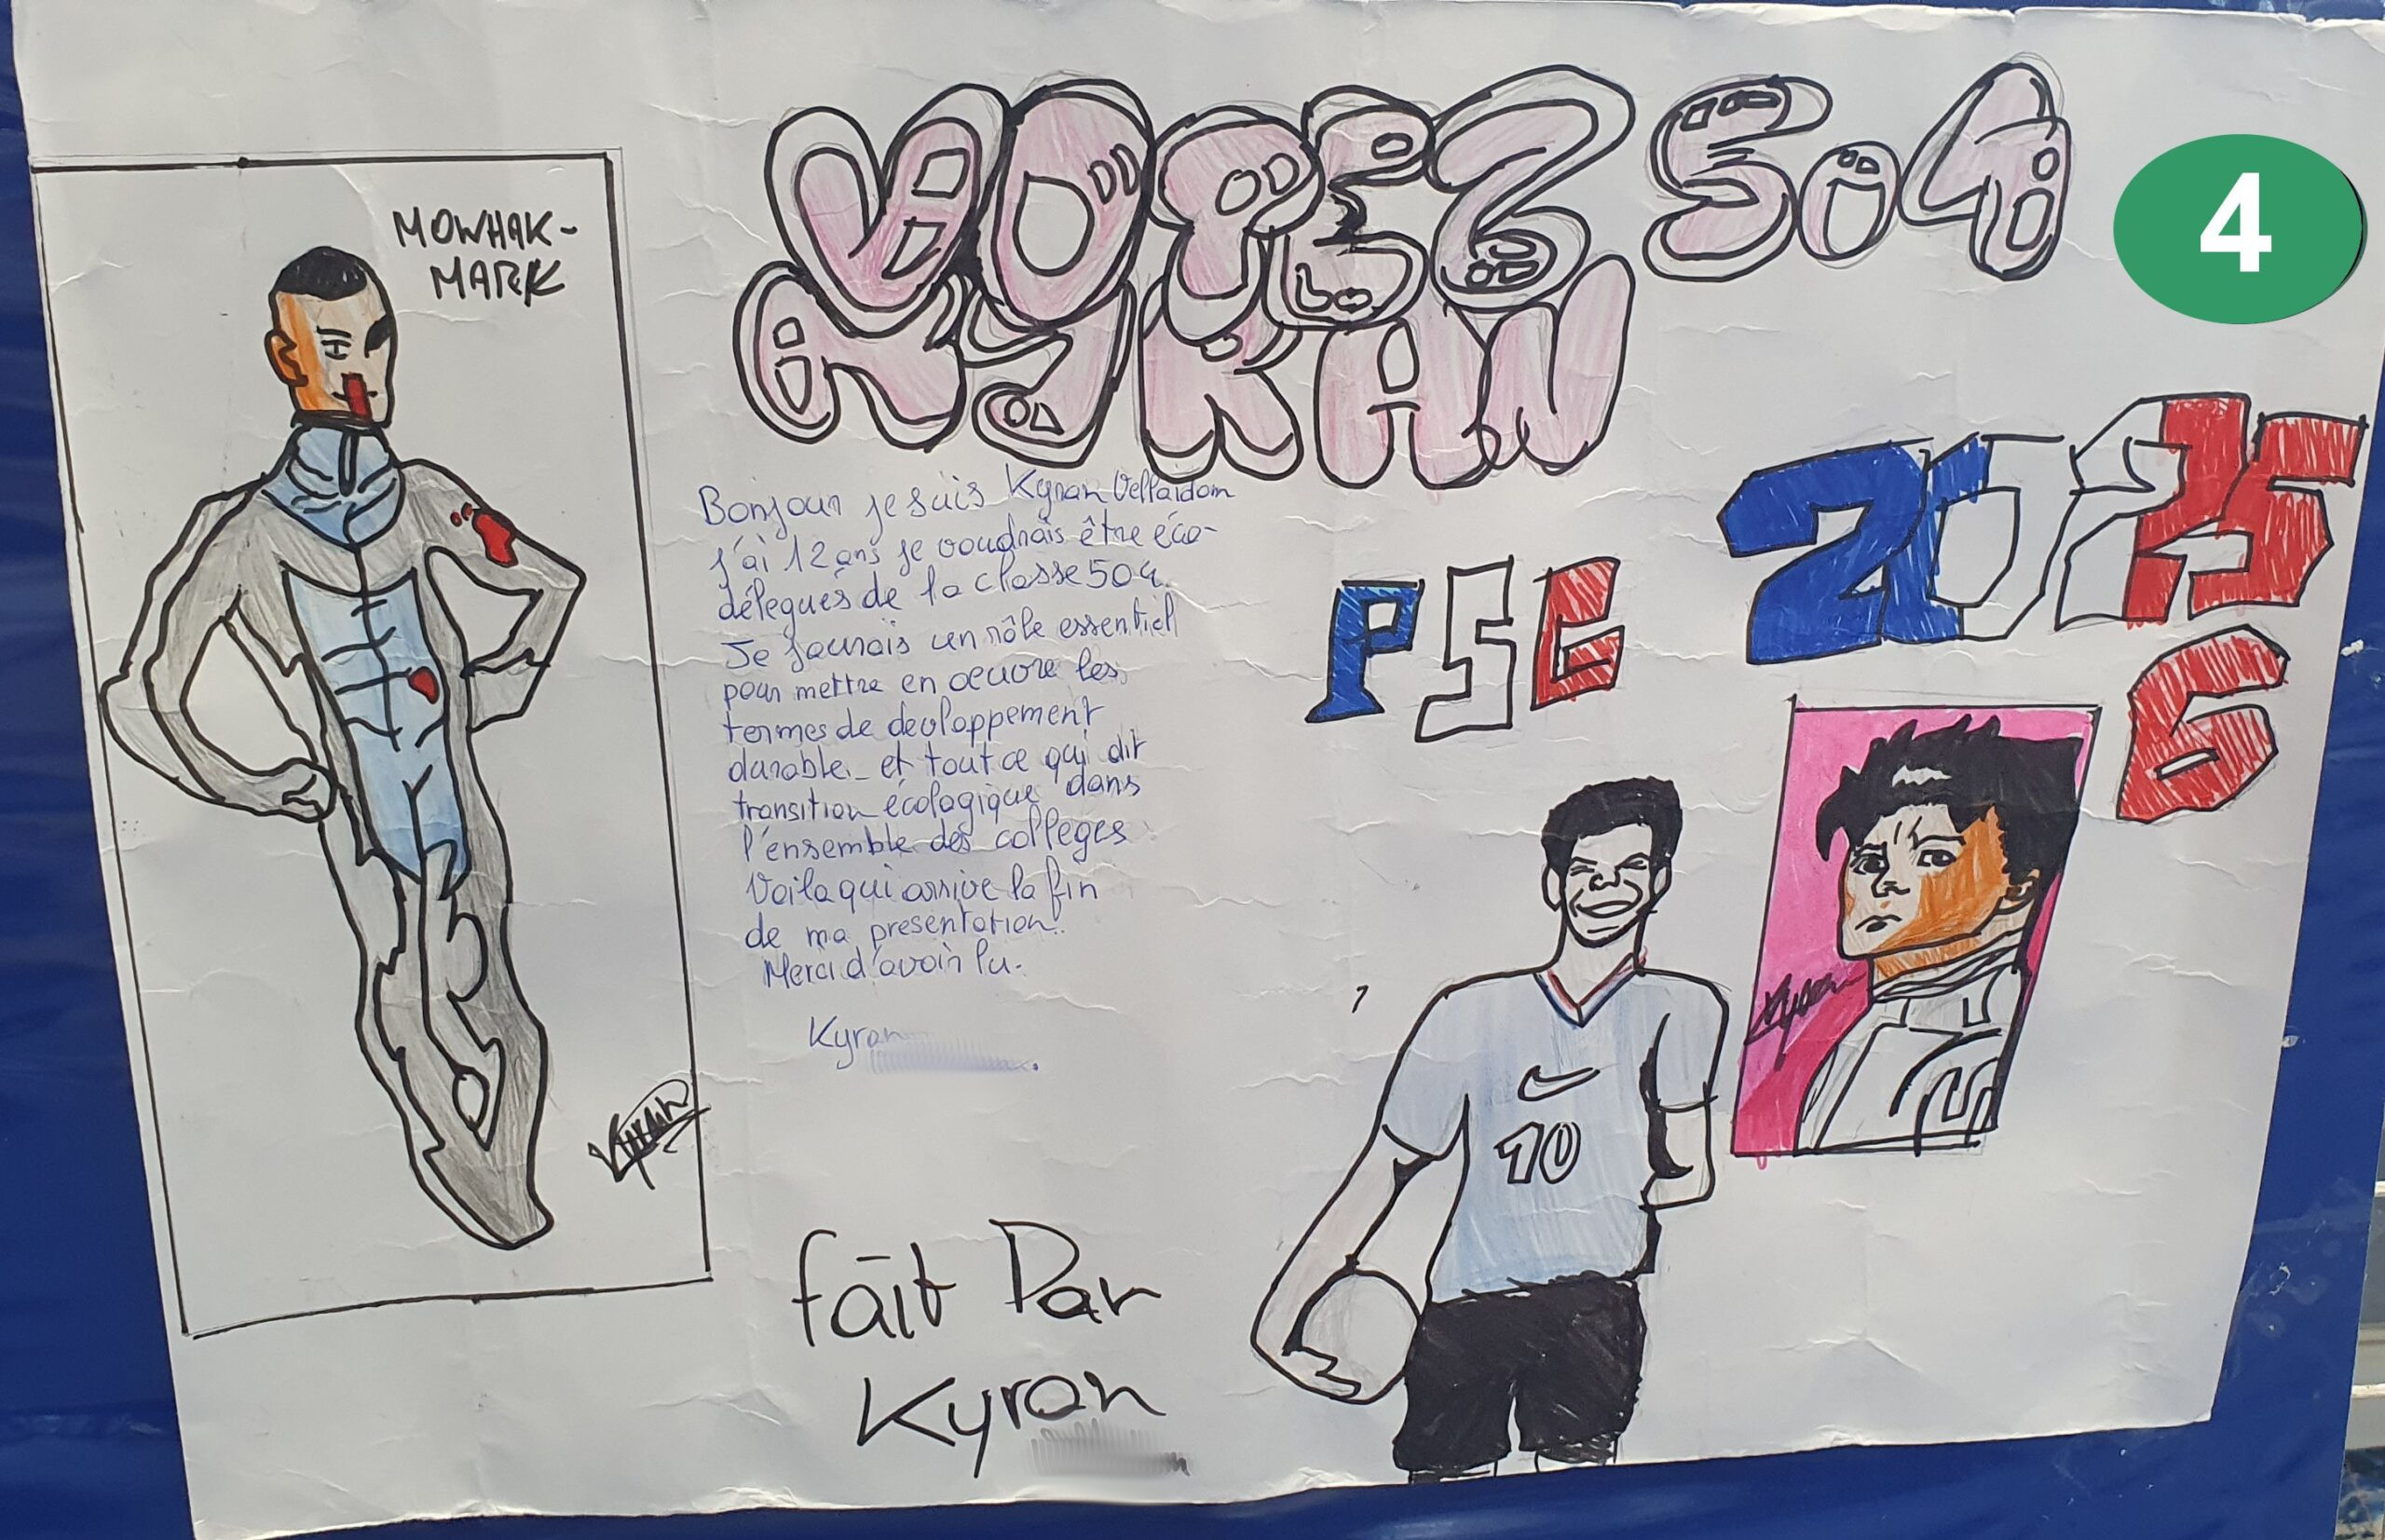 MOWHAK-
MARK
VOTEZ 504
KYRAN
4
Bonjour je suis Kyran Vellaidom
j'ai 12 ans je voudrais être éco-
délegués de la classe 504.
Je jaurais un rôle essentiel
pour mettre en oeuvre les
termes de devloppement
durable. et tout ce qui dit
transition écologique dans
l'ensemble des collèges
Voila qui arrive la fin
de ma presentation.
Merci d'avoir lu.
Kyran
2025
6
PSG
10
Kyran
Kyran
fait Par
Kyran